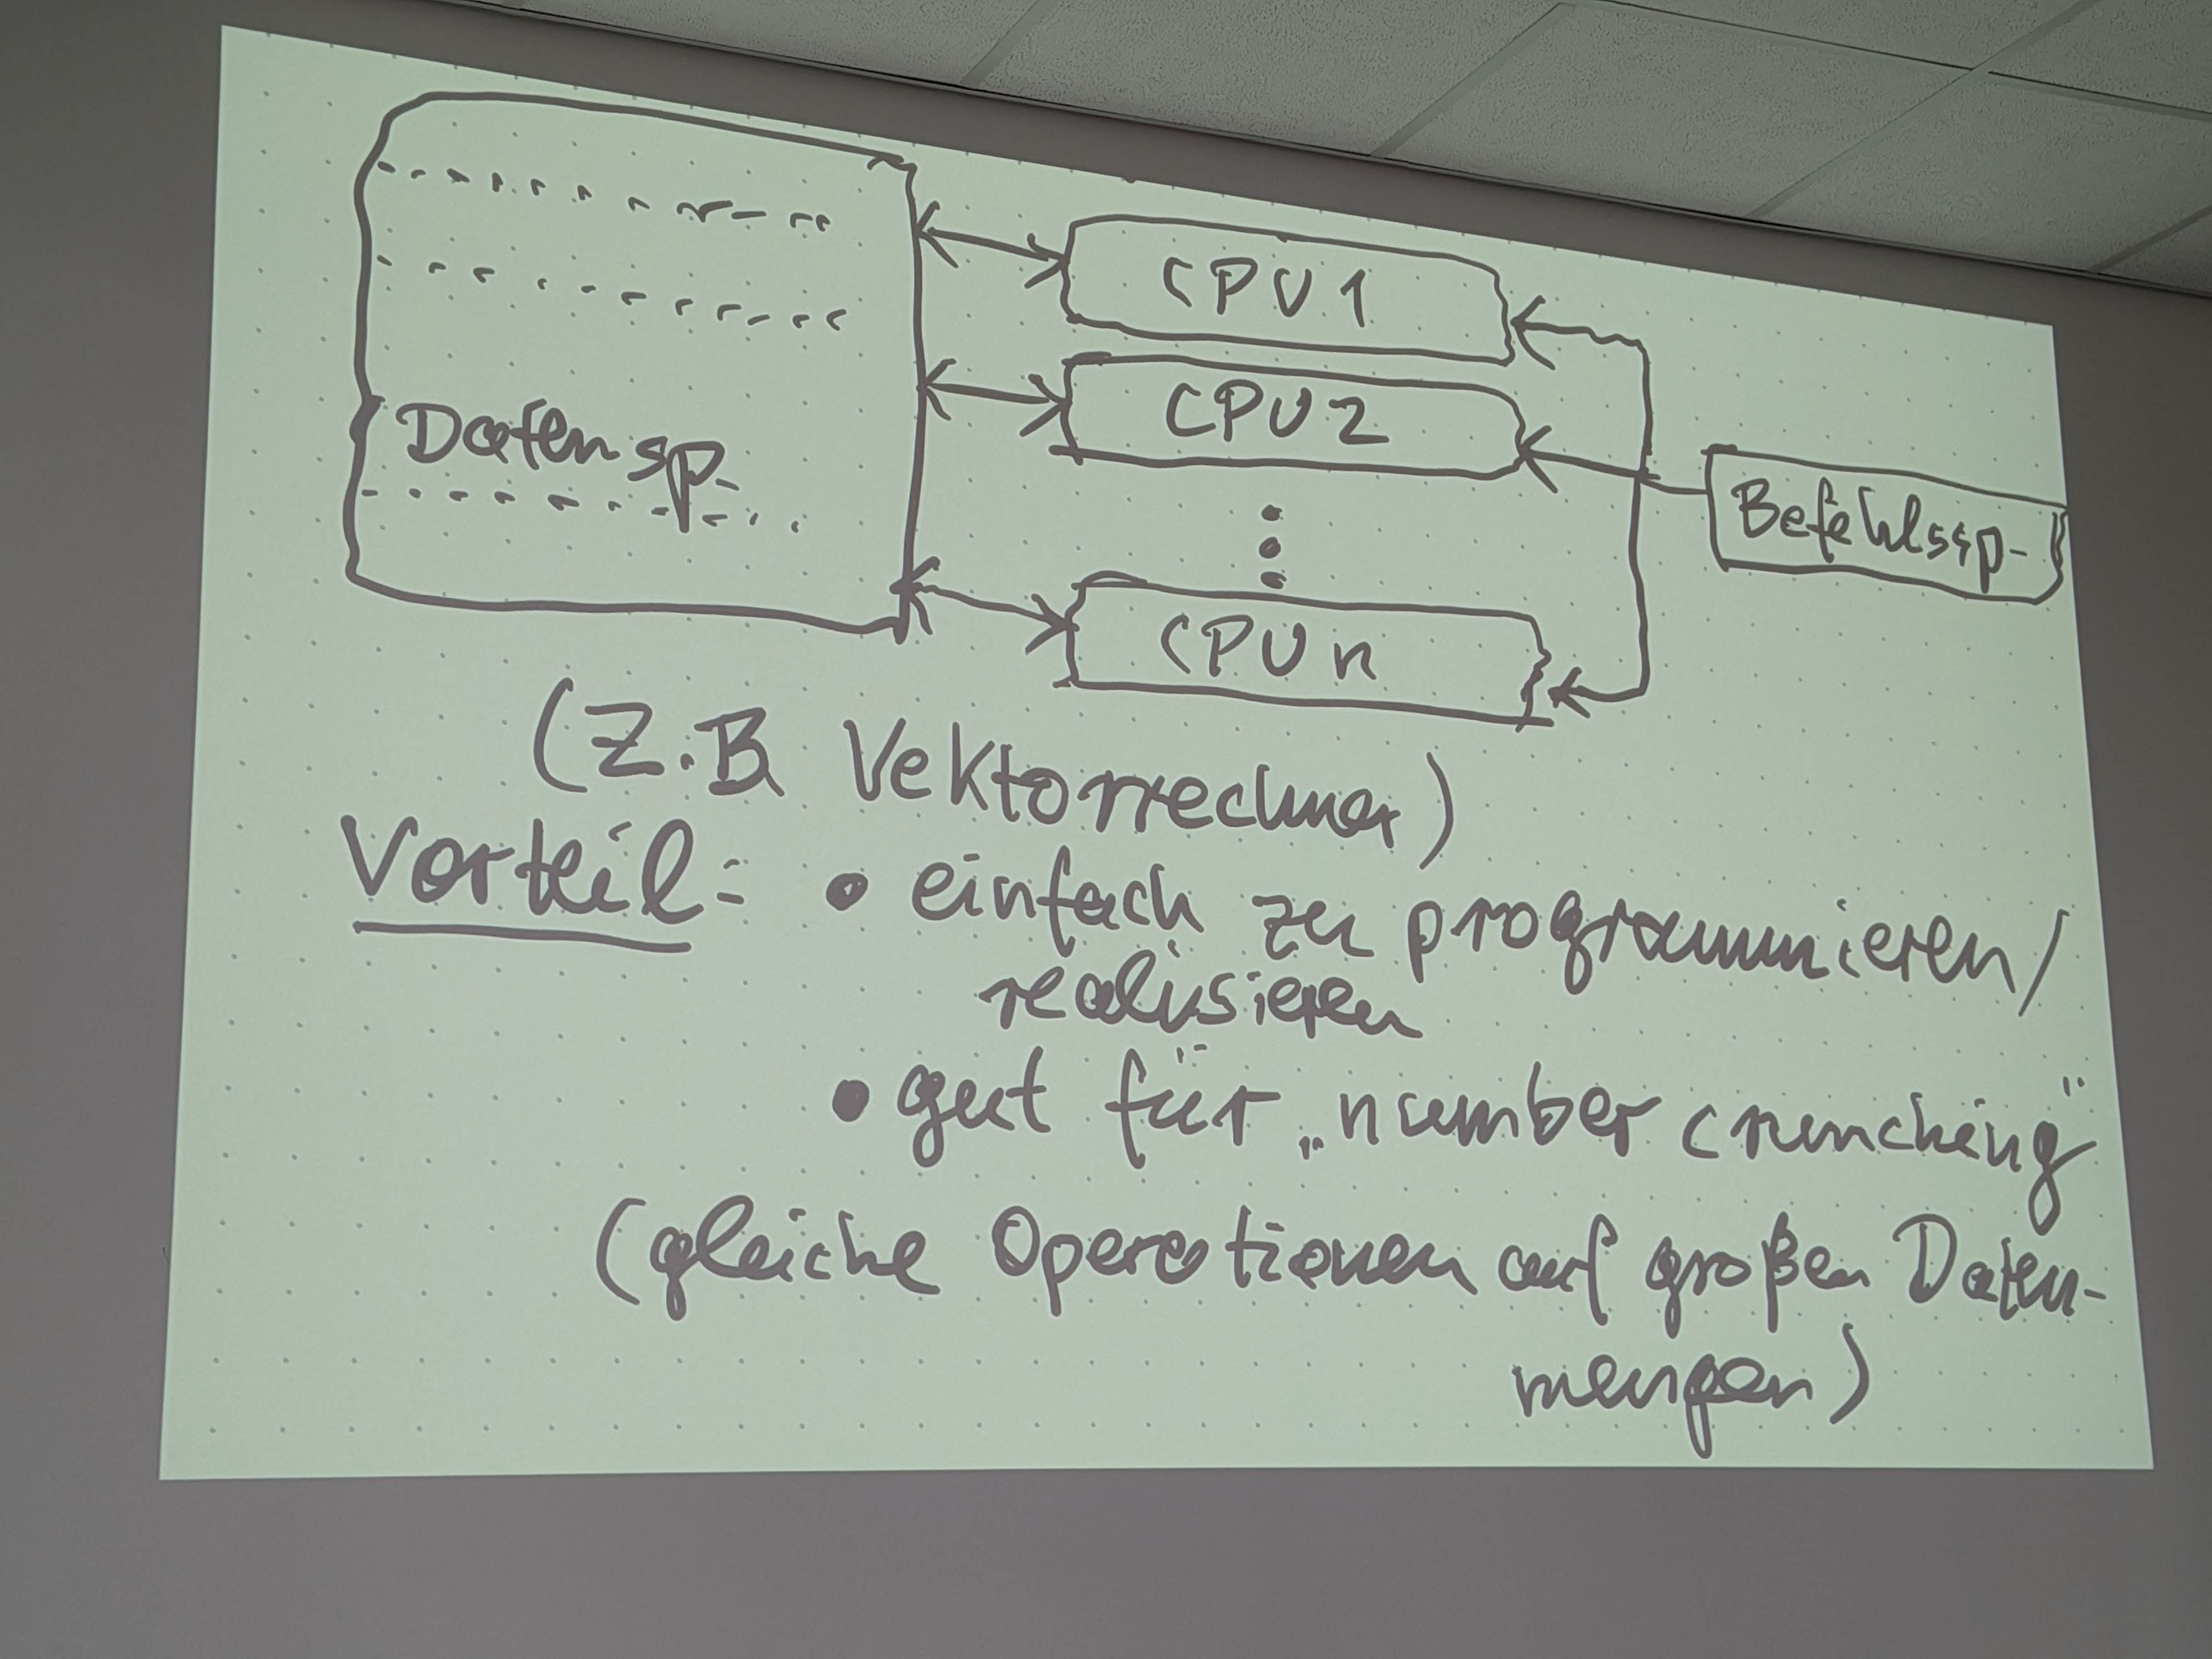 CPU 1
CPU 2
Datensp.
Befehlssp.
CPU n
(Z.B. Vektorrechner)
Vorteil: • einfach zu programmieren/
realisieren
• gut für „number crunching"
(gleiche Operationen auf großen Daten-
mengen)